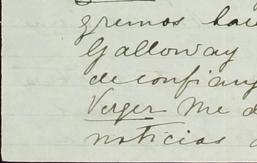 gremos hac
Galloway
de confianz
Verger me d
noticias d